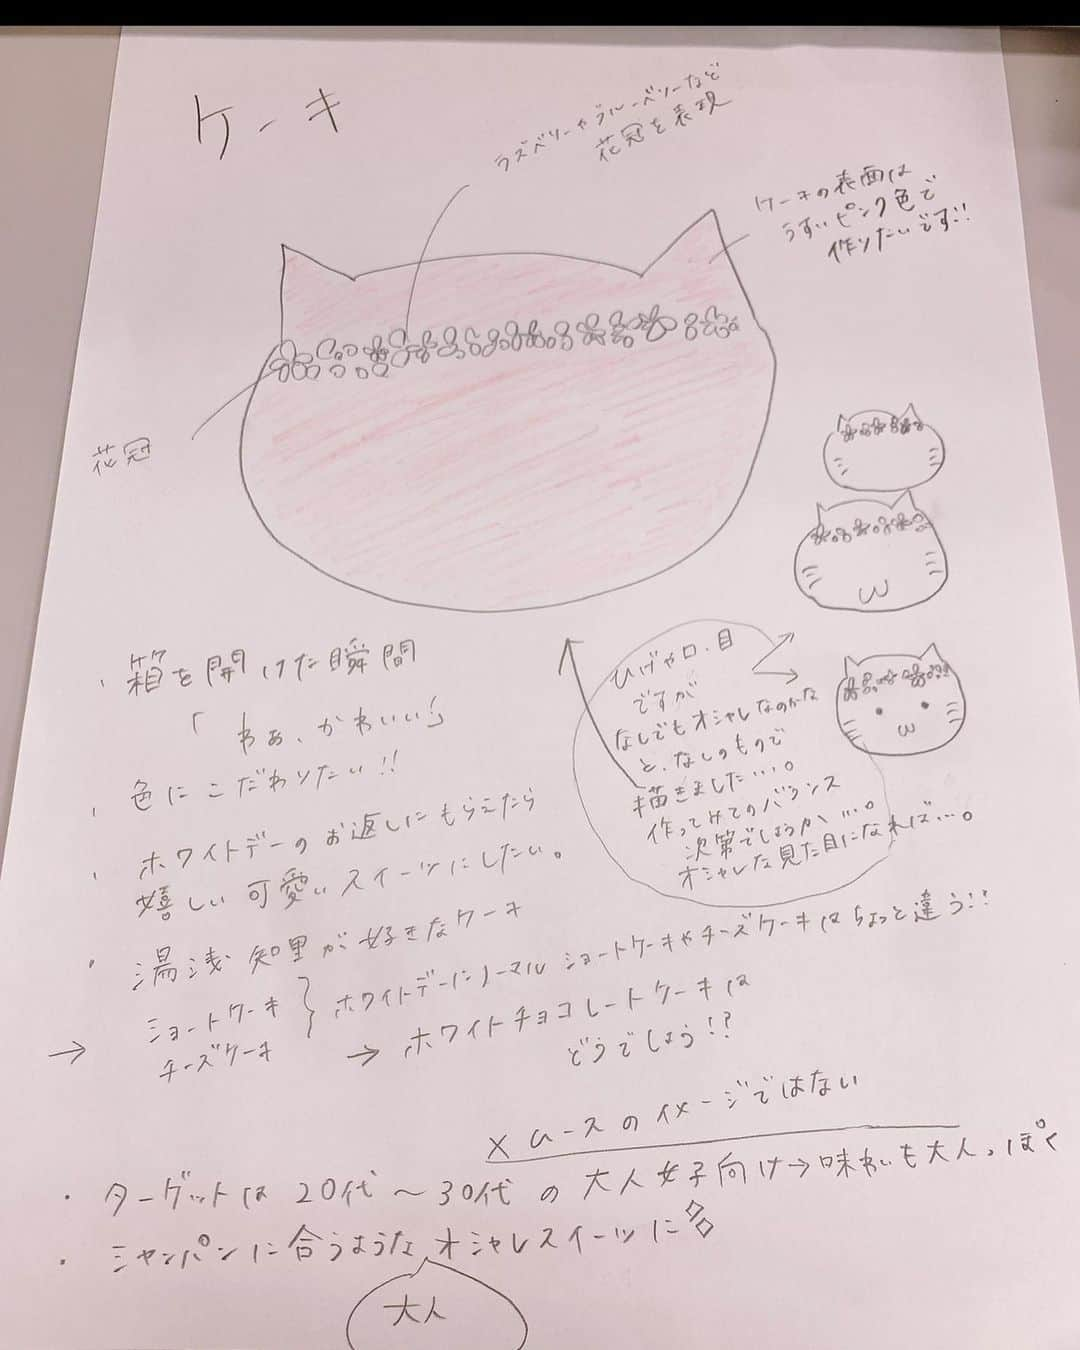 ケーキ
ラズベリーやブルーベリーなど
花冠を表現
ケーキの表面は
うすいピンク色で
作りたいです!!
花冠
・箱を開けた瞬間
「わぁ、かわいい」
・色にこだわりたい!!
・ホワイトデーのお返しにもらえたら
嬉しい可愛いスイーツにしたい。
ひげや口、目
ですが
なしでもオシャレなのかな
と、なしのもので
描きました…。
作ってみてのバランス
次第でしょうか…。
オシャレな見た目になれば…。
・湯浅知里が好きなケーキ
→ ショートケーキ
チーズケーキ
ホワイトデーにノーマルショートケーキやチーズケーキはちょっと違う!!
→ ホワイトチョコレートケーキは
どうでしょう!?
×ムースのイメージではない
・ターゲットは20代〜30代の大人女子向け→味わいも大人っぽく
・シャンパンに合うようなオシャレスイーツに
大人